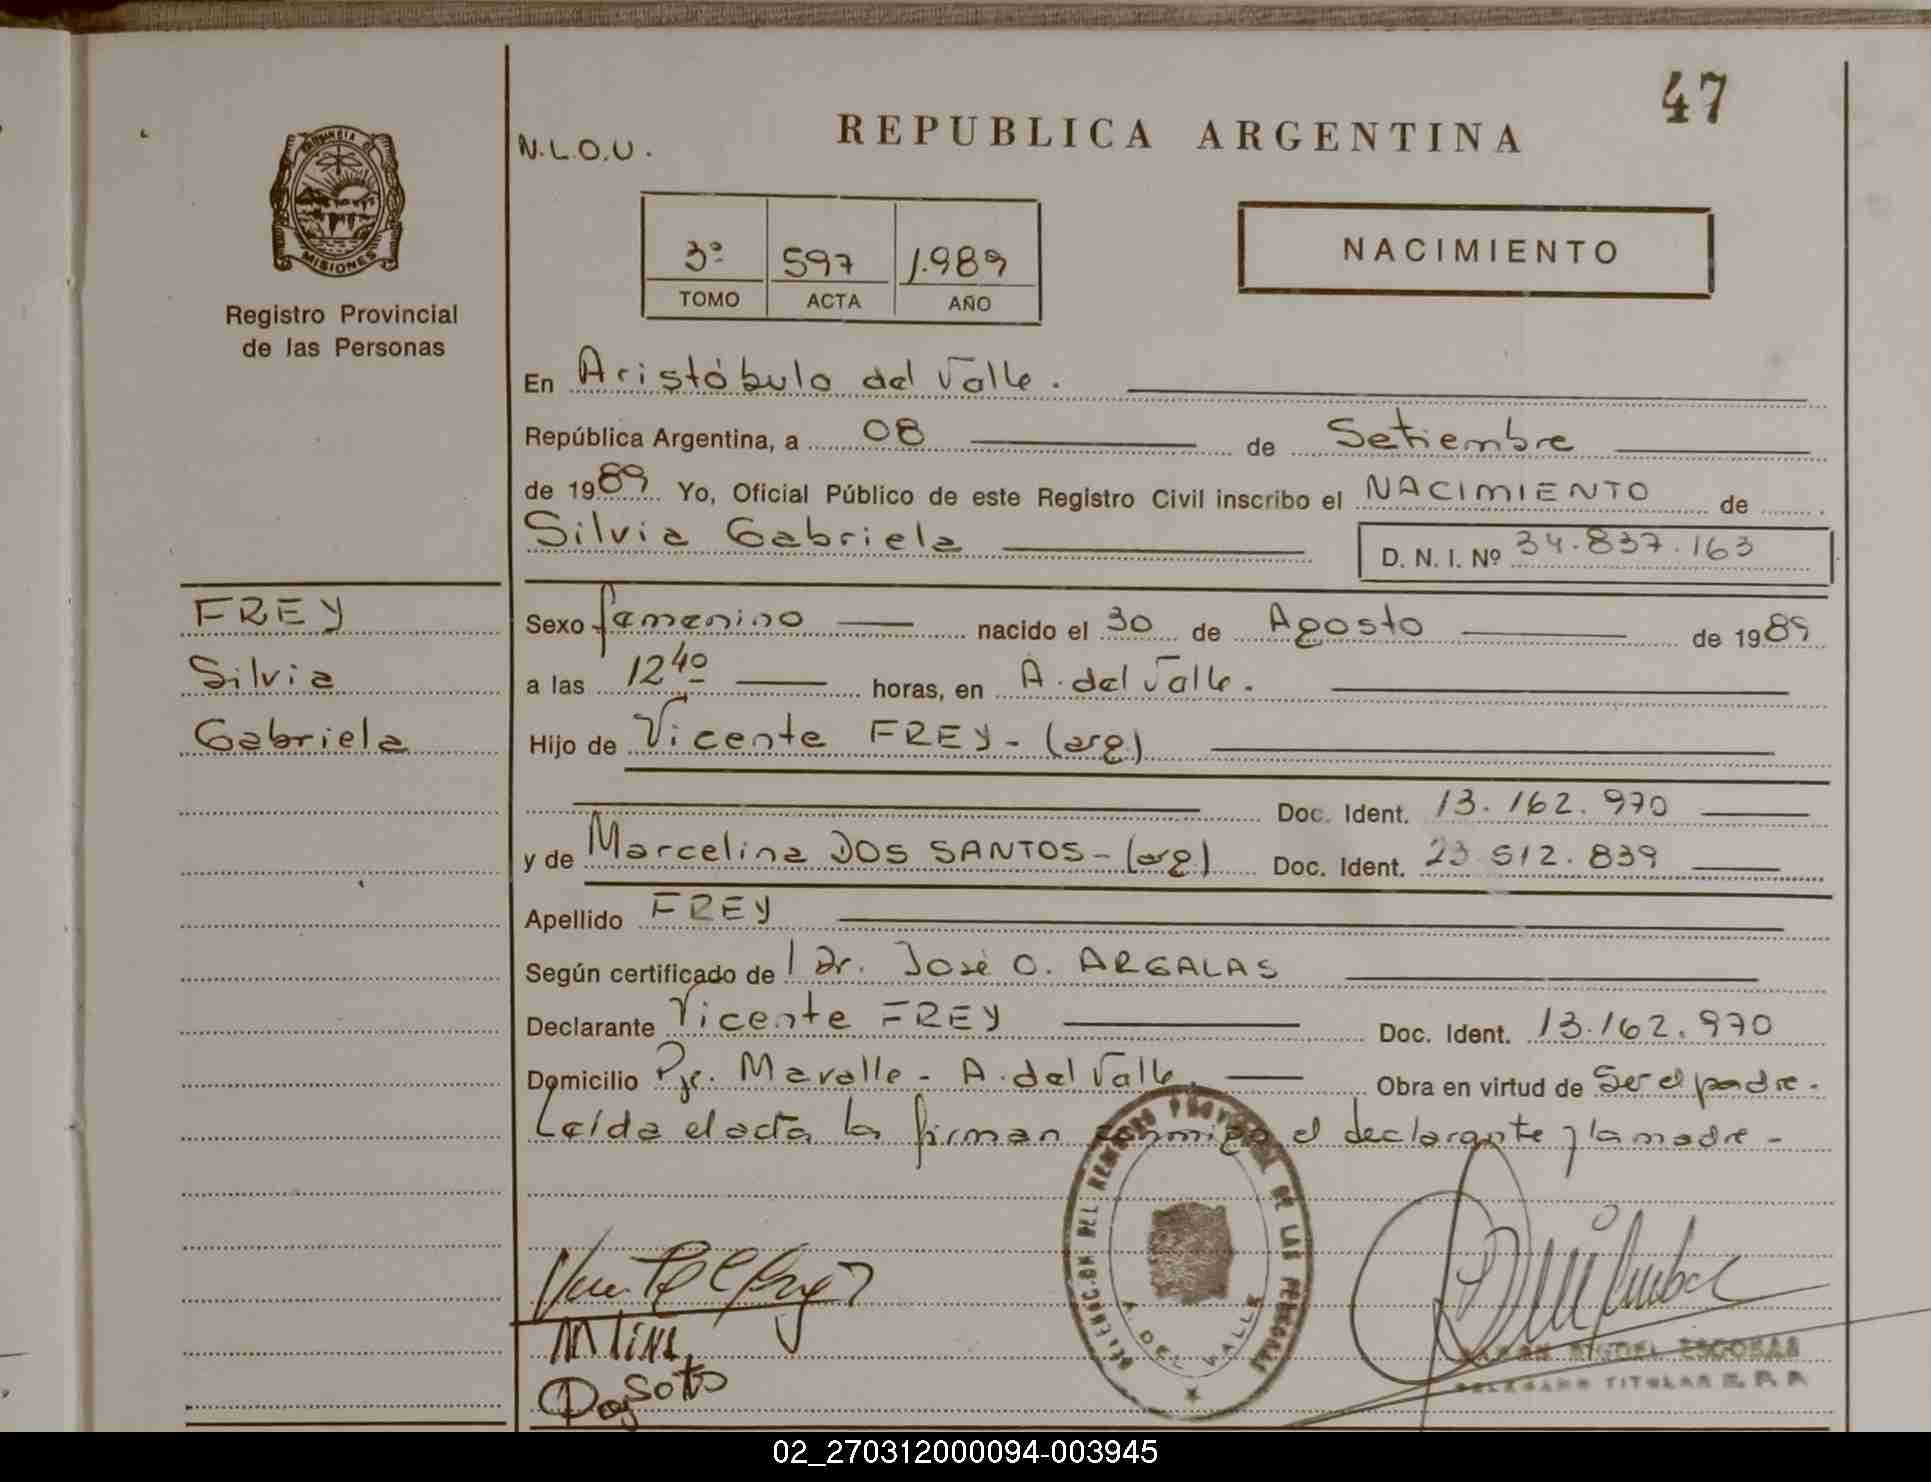 47
REPUBLICA ARGENTINA
N.L.O.U.
PROVINCIA DE
MISIONES
Registro Provincial
de las Personas
3º 597 1.989
TOMO ACTA AÑO
NACIMIENTO
En Aristóbulo del Valle.
República Argentina, a 08 de Setiembre
de 1989 Yo, Oficial Público de este Registro Civil inscribo el NACIMIENTO de
Silvia Gabriela D. N. I. Nº 34.837.163
FREY
Silvia
Gabriela
Sexo femenino nacido el 30 de Agosto de 1989
a las 12 40 horas, en A. del Valle.
Hijo de Vicente FREY - (arg.)
Doc. Ident. 13.162.970
y de Marcelina DOS SANTOS - (arg.) Doc. Ident. 23.512.839
Apellido FREY
Según certificado de l Dr. José O. ARGALAS
Declarante Vicente FREY Doc. Ident. 13.162.970
Domicilio Pje. Mavalle - A. del Valle Obra en virtud de Ser el padre.
Leída el acta la firman conmigo el declarante y la madre -
DELEGACION DEL REGISTRO PROVINCIAL DE LAS PERSONAS
A. DEL VALLE
RAMON MIGUEL ESCOBAR
DELEGADO TITULAR R. P. P.
02_270312000094-003945